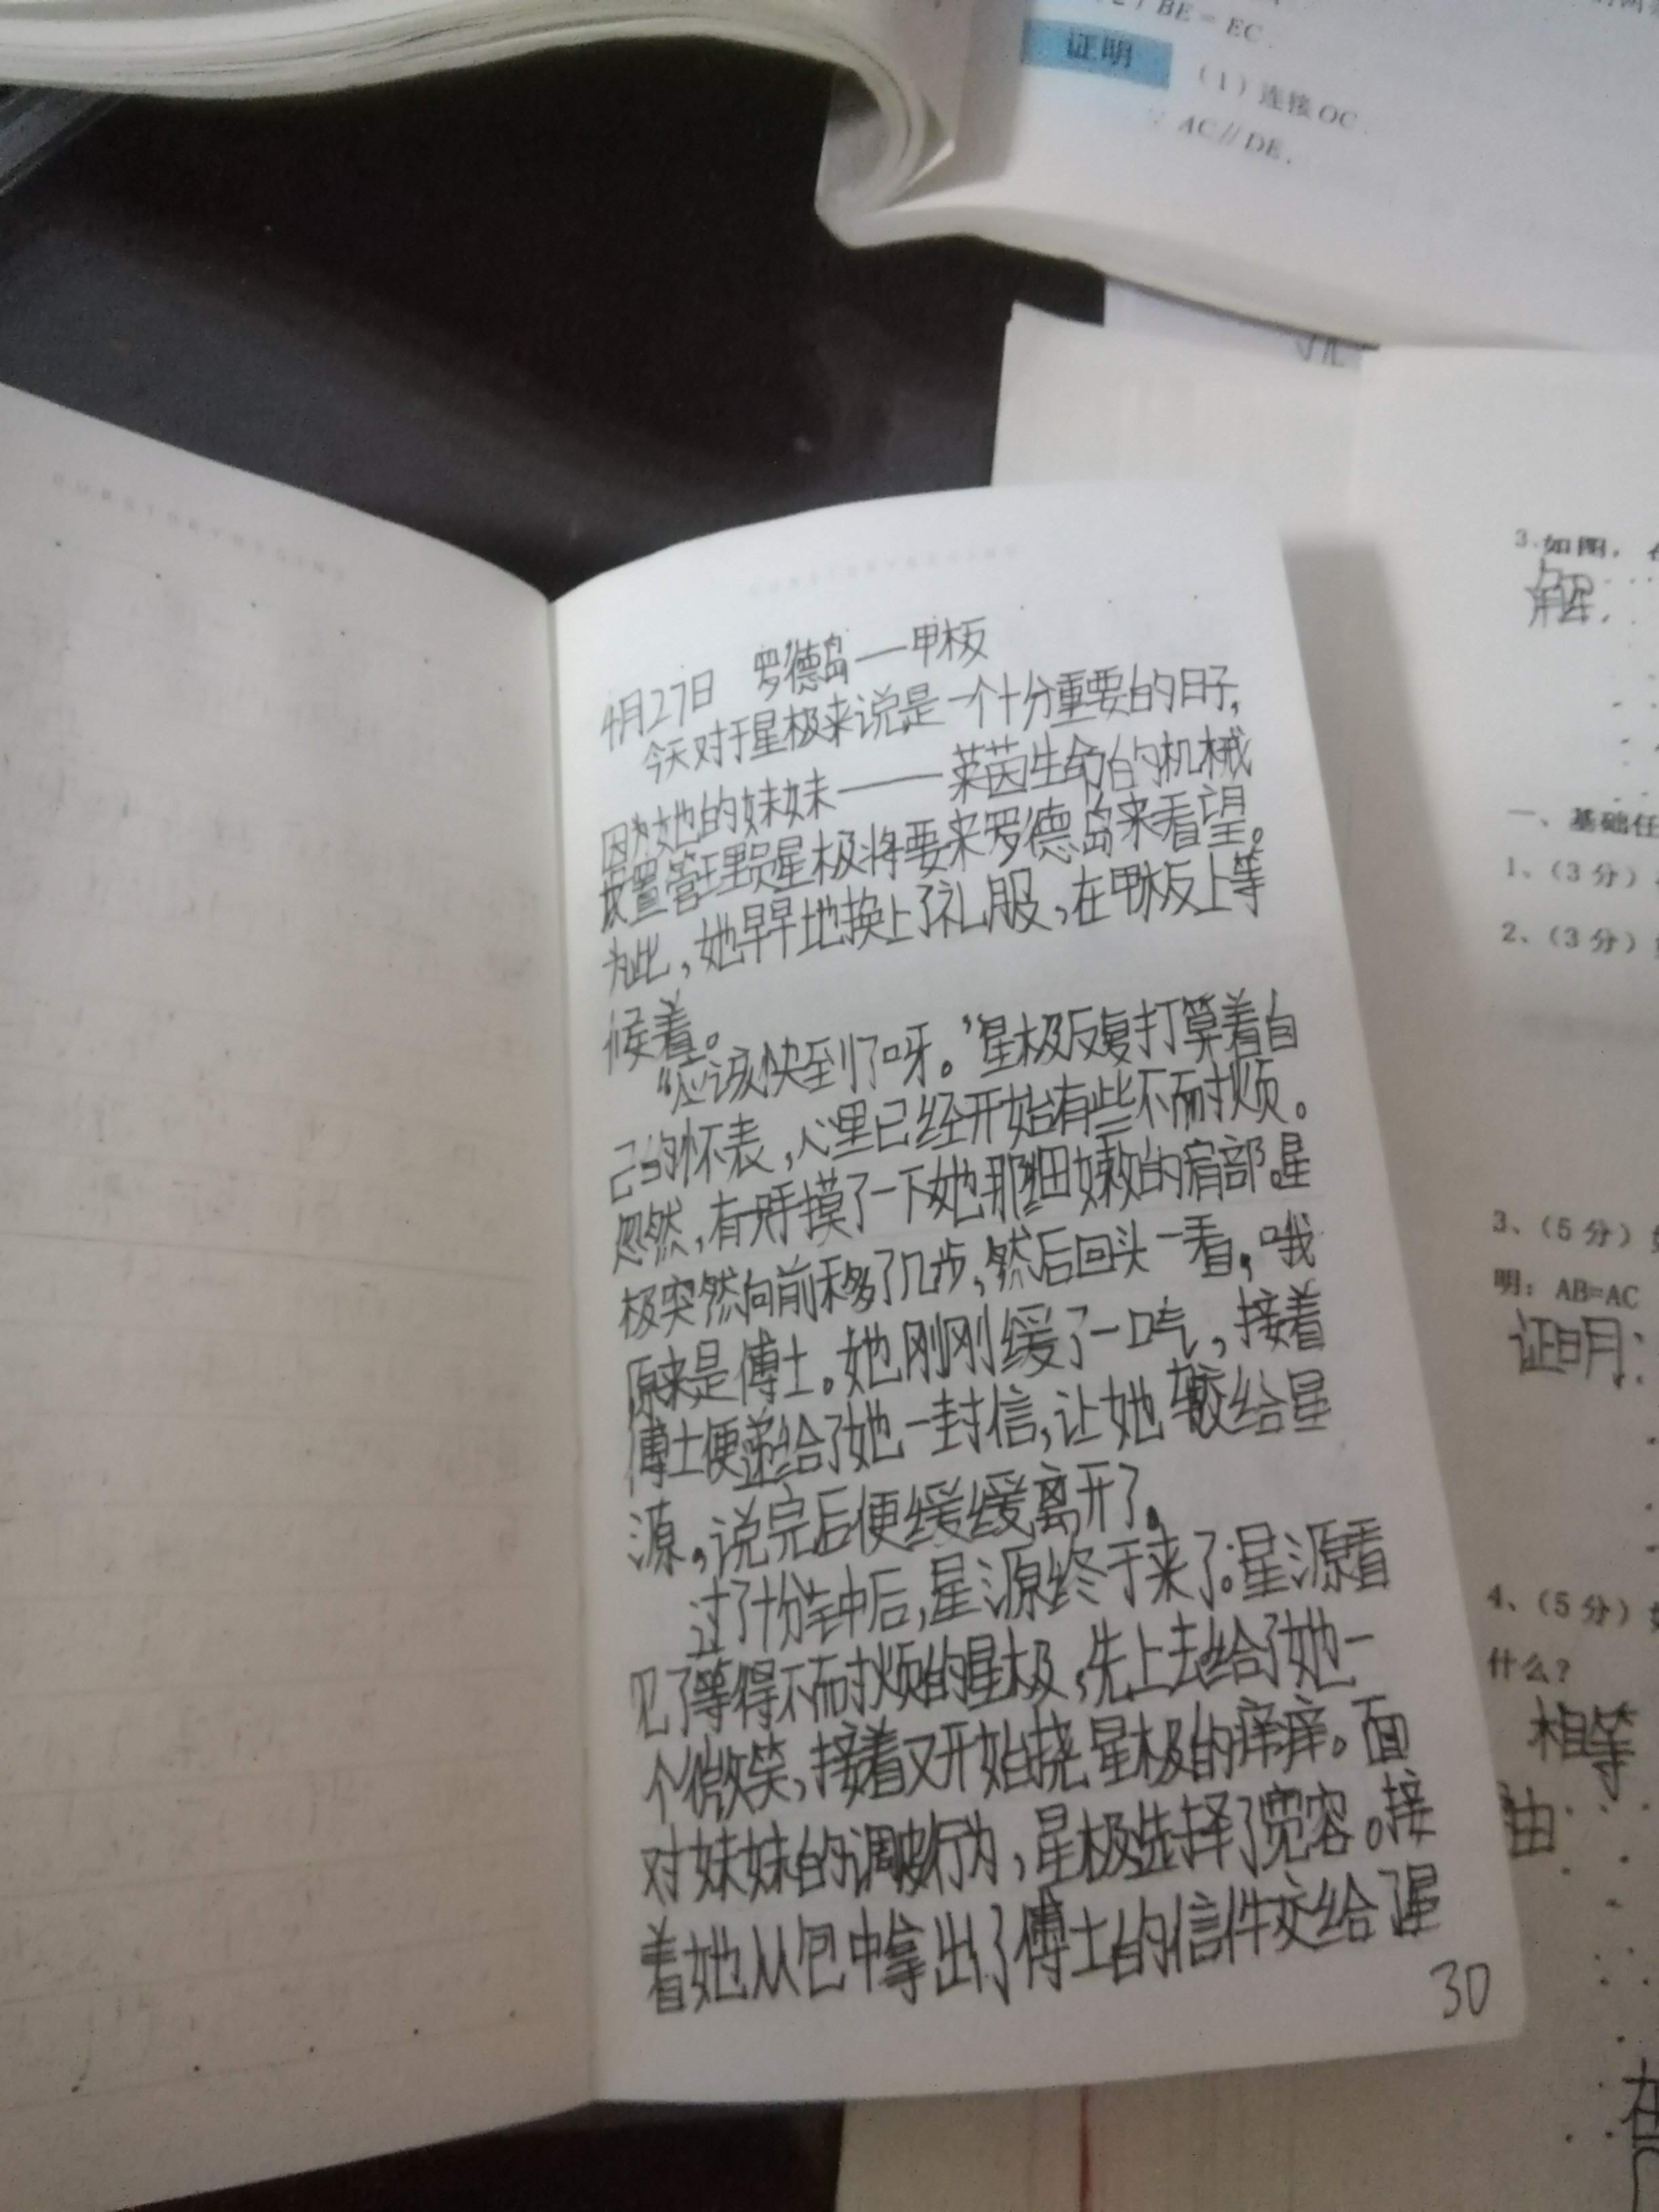 BE = EC.
证明
(1) 连接 OC.
∵ AC // DE,
4月27日 罗德岛——甲板
今天对于星极来说是一个十分重要的日子,
因为她的妹妹——莱茵生命的机械
设置管理员星极将要来罗德岛来看望。
为此,她早早地换上了礼服,在甲板上等
候着。
“应该快到了呀。”星极反复打算着自
己的怀表,心里已经开始有些不耐烦。
忽然,有一只手摸了一下她那细嫩的肩部。星
极突然向前移了几步,然后回头一看,哦
原来是博士。她刚刚缓了一口气,接着
博士便递给了她一封信,让她转交给星
源。,说完后便缓缓离开了。
过了十分钟后,星源终于来了。星源看
见了等得不耐烦的星极,先上去给了她一
个微笑,接着又开始挠星极的痒痒。面
对妹妹的调皮行为,星极选择了宽容。接
着她从包中拿出了博士的信件交给了星
30
3.如图,
解.
一、基础任
1、(3分)
2、(3分)
3、(5分)
明:AB=AC
证明:
4、(5分)
什么?
相等
由
在